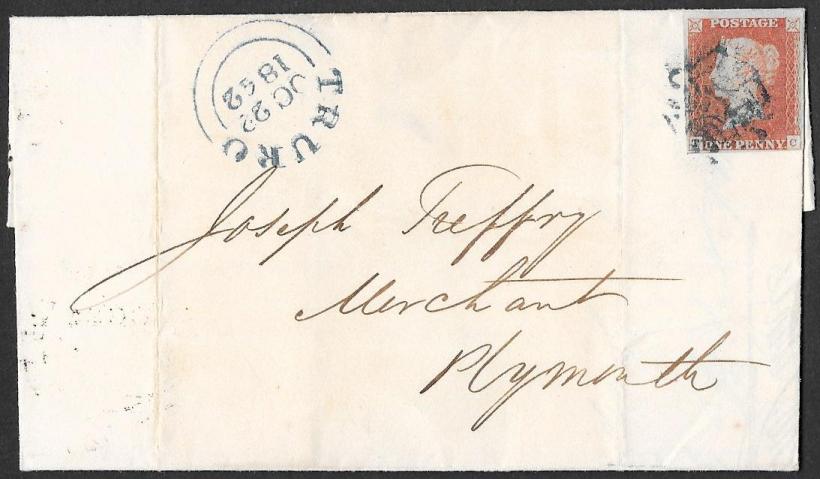 TRURO
OC 22
1842
POSTAGE
T ONE PENNY C
Joseph Treffry
Merchant
Plymouth